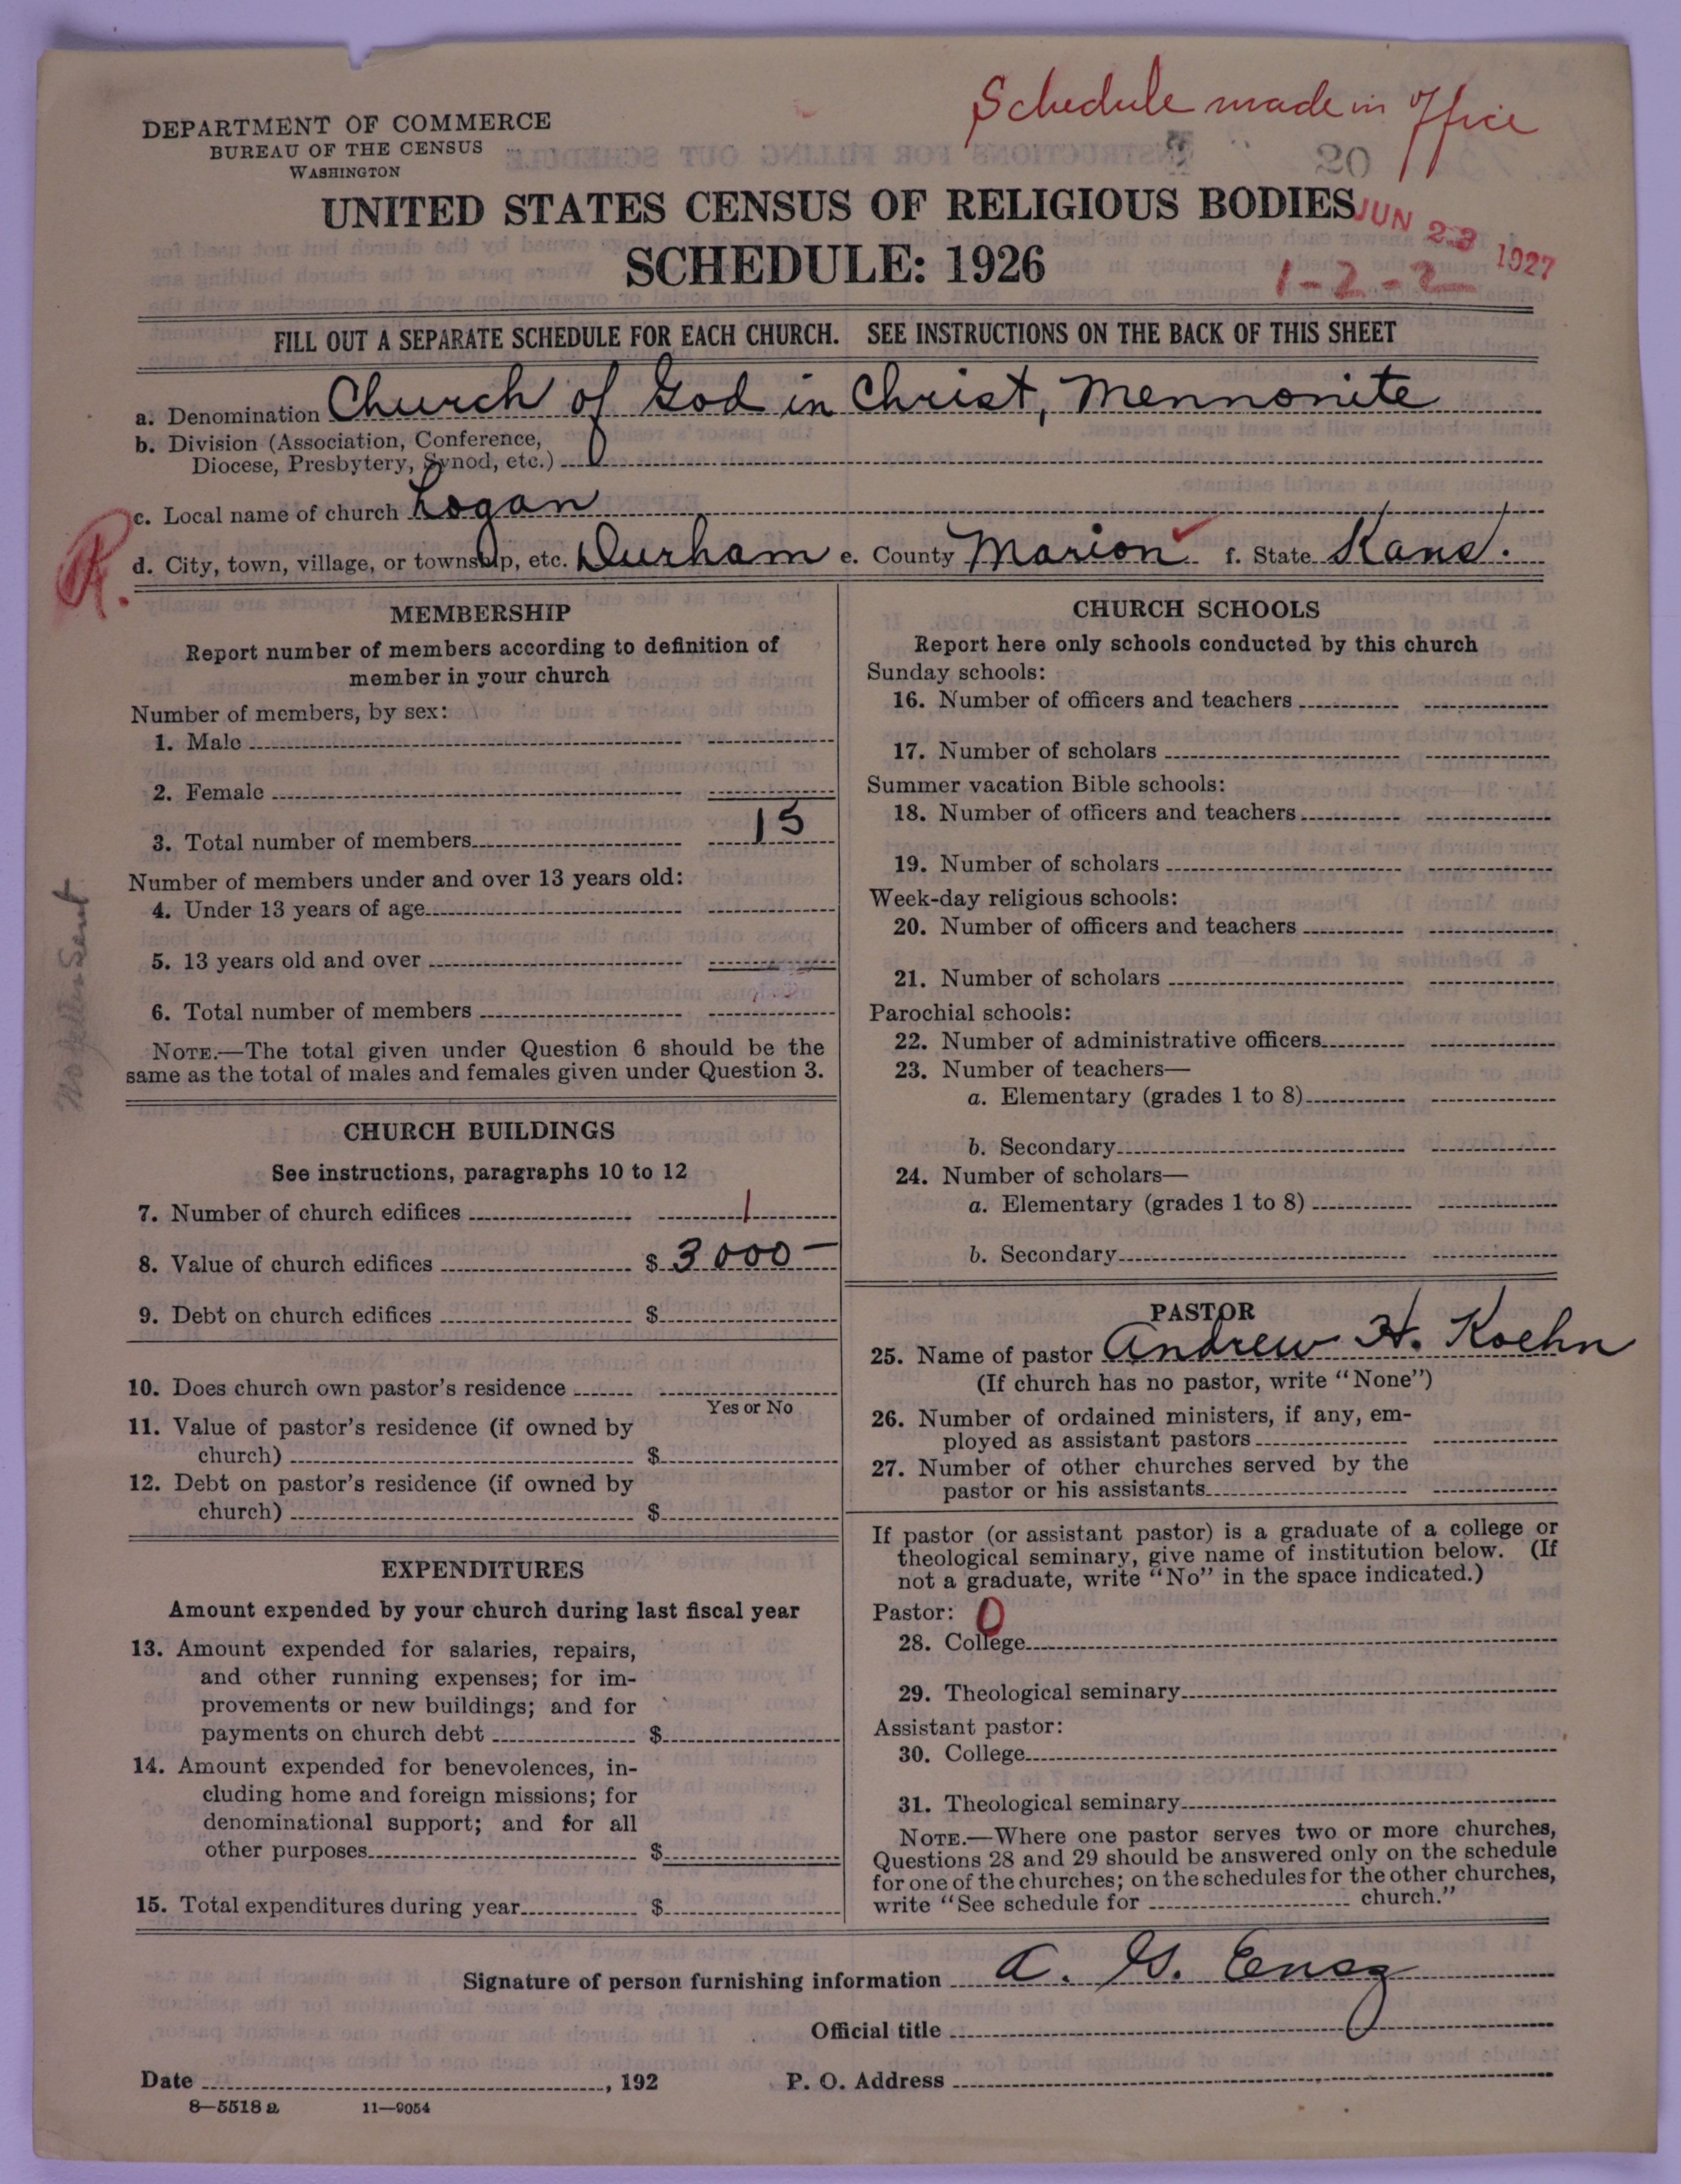 Schedule made in office
DEPARTMENT OF COMMERCE
BUREAU OF THE CENSUS
WASHINGTON
20
UNITED STATES CENSUS OF RELIGIOUS BODIES
JUN 23 1927
SCHEDULE: 1926
1-2-2
FILL OUT A SEPARATE SCHEDULE FOR EACH CHURCH. SEE INSTRUCTIONS ON THE BACK OF THIS SHEET
a. Denomination Church of God in Christ, Mennonite
b. Division (Association, Conference,
Diocese, Presbytery, Synod, etc.)
c. Local name of church Logan
R.
d. City, town, village, or township, etc. Durham e. County Marion f. State Kans.
MEMBERSHIP
Report number of members according to definition of
member in your church
Number of members, by sex:
1. Male
2. Female
3. Total number of members 15
Number of members under and over 13 years old:
4. Under 13 years of age
5. 13 years old and over
6. Total number of members
NOTE.—The total given under Question 6 should be the
same as the total of males and females given under Question 3.
CHURCH BUILDINGS
See instructions, paragraphs 10 to 12
7. Number of church edifices 1
8. Value of church edifices $ 3000—
9. Debt on church edifices $
10. Does church own pastor's residence
Yes or No
11. Value of pastor's residence (if owned by
church) $
12. Debt on pastor's residence (if owned by
church) $
EXPENDITURES
Amount expended by your church during last fiscal year
13. Amount expended for salaries, repairs,
and other running expenses; for im-
provements or new buildings; and for
payments on church debt $
14. Amount expended for benevolences, in-
cluding home and foreign missions; for
denominational support; and for all
other purposes $
15. Total expenditures during year $
CHURCH SCHOOLS
Report here only schools conducted by this church
Sunday schools:
16. Number of officers and teachers
17. Number of scholars
Summer vacation Bible schools:
18. Number of officers and teachers
19. Number of scholars
Week-day religious schools:
20. Number of officers and teachers
21. Number of scholars
Parochial schools:
22. Number of administrative officers
23. Number of teachers—
a. Elementary (grades 1 to 8)
b. Secondary
24. Number of scholars—
a. Elementary (grades 1 to 8)
b. Secondary
PASTOR
25. Name of pastor Andrew H. Koehn
(If church has no pastor, write "None")
26. Number of ordained ministers, if any, em-
ployed as assistant pastors
27. Number of other churches served by the
pastor or his assistants
If pastor (or assistant pastor) is a graduate of a college or
theological seminary, give name of institution below. (If
not a graduate, write "No" in the space indicated.)
Pastor: 0
28. College
29. Theological seminary
Assistant pastor:
30. College
31. Theological seminary
NOTE.—Where one pastor serves two or more churches,
Questions 28 and 29 should be answered only on the schedule
for one of the churches; on the schedules for the other churches,
write "See schedule for church."
Signature of person furnishing information A. G. Ensz
Official title
Date , 192
P. O. Address
8—5518 a 11—9054
No letter sent